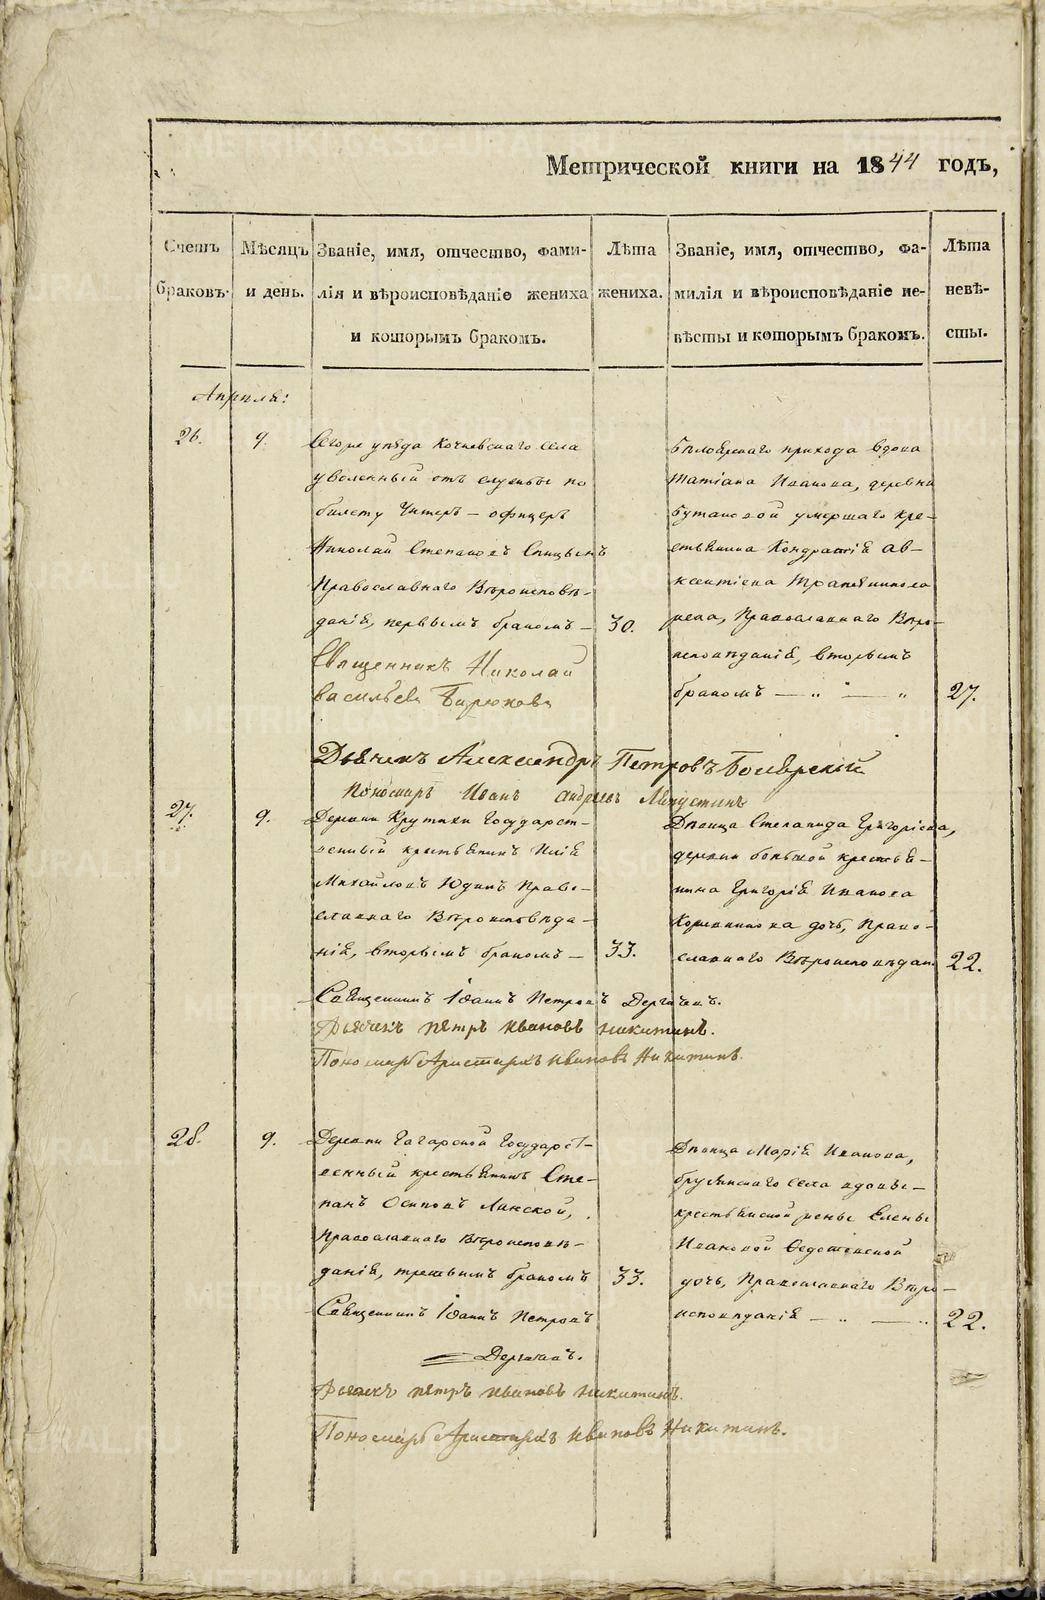 Метрической книги на 1844 годъ,
Счетъ браковъ.
Мѣсяцъ и день.
Званіе, имя, отчество, фами-
лія и вѣроисповѣданіе жениха
и которымъ бракомъ.
Лѣта
жениха.
Званіе, имя, отчество, фа-
милія и вѣроисповѣданіе не-
вѣсты и которымъ бракомъ.
Лѣта
невѣ-
сты.
Апрѣля:
26.
9.
уѣзда Кочневскаго села
уволенный отъ службы по
билету Унтеръ – офицеръ
Николай Степановъ Спицынъ
Православнаго Вѣроисповѣ-
данія, первымъ бракомъ –
30.
Бѣлоярскаго прихода вдова
Татіана Иванова, деревни
Бутаковой умершаго кре-
стьянина Кондратія Ав-
ксентіева
жена, Православнаго Вѣро-
исповѣданія, вторымъ
бракомъ — „ — „
27.
Священникъ Николай
Васильевъ Бирюковъ
Дьячекъ Александръ Петровъ Боярскій
Пономарь Иванъ Андреевъ
27.
9.
Деревни Крутихи Государст-
венный крестьянинъ Илія
Михайловъ Юдинъ Право-
славнаго Вѣроисповѣда-
нія, вторымъ бракомъ –
33.
Дѣвица Степанида Григоріева,
деревни большой крестья-
нина Григорія Иванова
дочь, Право-
славнаго Вѣроисповѣдан.
22.
Священникъ Іоаннъ Петровъ Дергачевъ.
Дьячекъ Петръ Ивановъ Никитинъ.
Пономарь Аристархъ Ивановъ Никитинъ.
28.
9.
Деревни Гагарской Государст-
венный крестьянинъ Сте-
панъ Осиповъ Ланской,
Православнаго Вѣроисповѣ-
данія, третьимъ бракомъ
33.
Дѣвица Марія Иванова,
Брусянскаго села вдовы –
крестьянской жены Елены
Ивановой
дочь, Православнаго Вѣро-
исповѣданія — „ — „
22.
Священникъ Іоаннъ Петровъ
Дергачевъ.
Дьячекъ Петръ Ивановъ Никитинъ.
Пономарь Аристархъ Ивановъ Никитинъ.